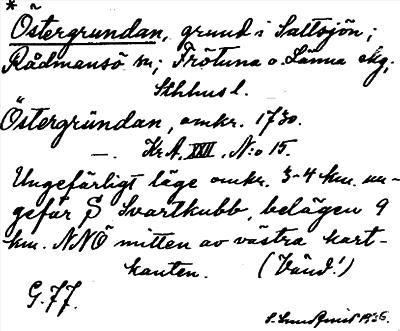 * Östergrundan, grund i Saltsjön;
Rådmansö sn; Frötuna o. Länna skg;
Sthlms l.
Östergründan, omkr. 1730.
— . Kr. A. XXII, N:o 15.
Ungefärligt läge omkr. 3-4 km. un-
gefär S Svartkubb, belägen 9
km. NNÖ mitten av västra kart-
kanten. (Vänd!)
G. 77.